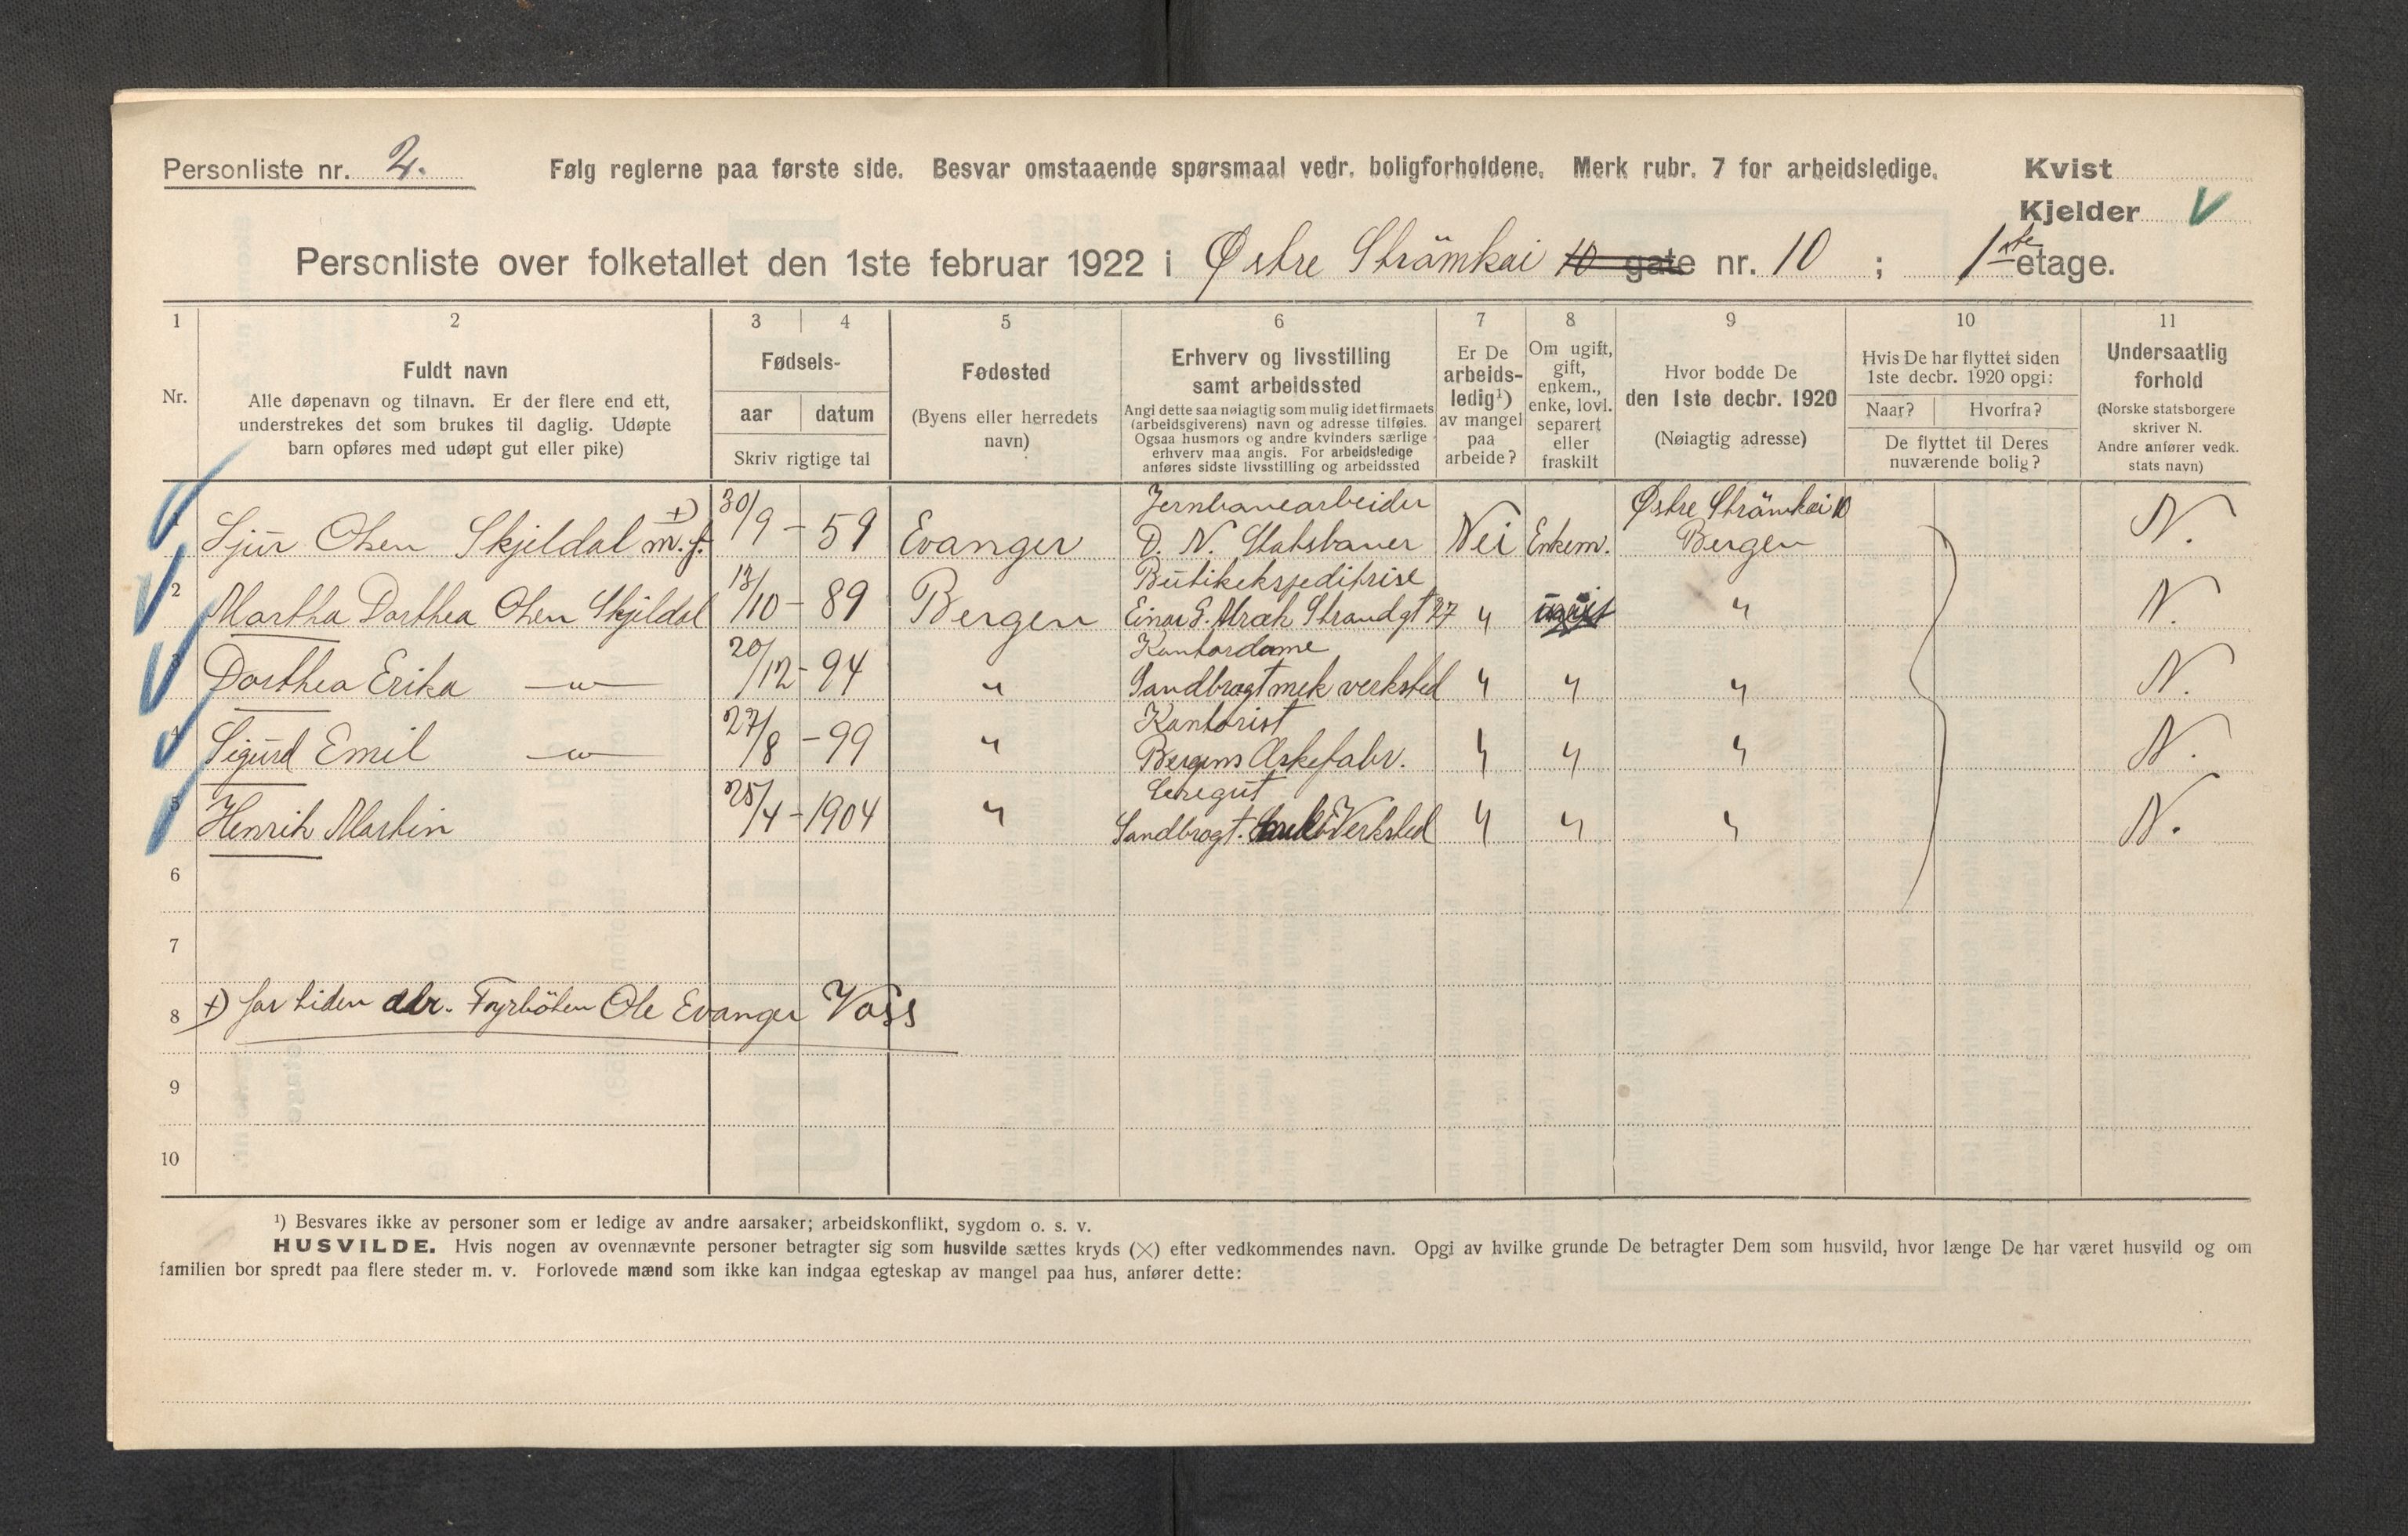 Personliste nr. 2. Følg reglerne paa første side. Besvar omstaaende spørsmaal vedr. boligforholdene. Merk rubr. 7 for arbeidsledige. Kvist
Kjelder V
Personliste over folketallet den 1ste februar 1922 i Østre Strömkai 10 gate nr. 10 ; 1ste etage.
1 2 3 4 5 6 7 8 9 10 11
Nr.
Fuldt navn
Alle døpenavn og tilnavn. Er der flere end ett,
understrekes det som brukes til daglig. Udøpte
barn opføres med udøpt gut eller pike)
Fødsels-
aar datum
Skriv rigtige tal
Fødested
(Byens eller herredets
navn)
Erhverv og livsstilling
samt arbeidssted
Angi dette saa nøiagtig som mulig idet firmaets
(arbeidsgiverens) navn og adresse tilføies.
Ogsaa husmors og andre kvinders særlige
erhverv maa angis. For arbeidsledige
anføres sidste livsstilling og arbeidssted
Er De
arbeids-
ledig¹)
av mangel
paa
arbeide?
Om ugift,
gift,
enkem.,
enke, lovl.
separert
eller
fraskilt
Hvor bodde De
den 1ste decbr. 1920
(Nøiagtig adresse)
Hvis De har flyttet siden
1ste decbr. 1920 opgi:
Naar? Hvorfra?
De flyttet til Deres
nuværende bolig?
Undersaatlig
forhold
(Norske statsborgere
skriver N.
Andre anfører vedk.
stats navn)
1 Sjur Olsen Skjeldal m. f. +) 30/9 - 59 Evanger Jernbanearbeider D. N. Statsbaner Nei Enkem. Østre Strömkai 10 Bergen N.
2 Martha Dorthea Olsen Skjeldal 13/10 - 89 Bergen Butikekspeditrise Einar S. Strandgt 27 " ugift " N.
3 Dorthea Erika —"— 20/12 - 94 " Kontordame Sandbrogt mek verksted " " " N.
4 Sigurd Emil —"— 27/8 - 99 " Kontorist Bergens Æskefabr. " " " N.
5 Henrik Martin 25/4 - 1904 " Læregut Sandbrogt. Verksted " " " N.
6
7
8 +) for tiden adr. Fyrböter Ole Evanger Voss
9
10
¹) Besvares ikke av personer som er ledige av andre aarsaker; arbeidskonflikt, sygdom o. s. v.
HUSVILDE. Hvis nogen av ovennævnte personer betragter sig som husvilde sættes kryds (×) efter vedkommendes navn. Opgi av hvilke grunde De betragter Dem som husvild, hvor længe De har været husvild og om
familien bor spredt paa flere steder m. v. Forlovede mænd som ikke kan indgaa egteskap av mangel paa hus, anfører dette: